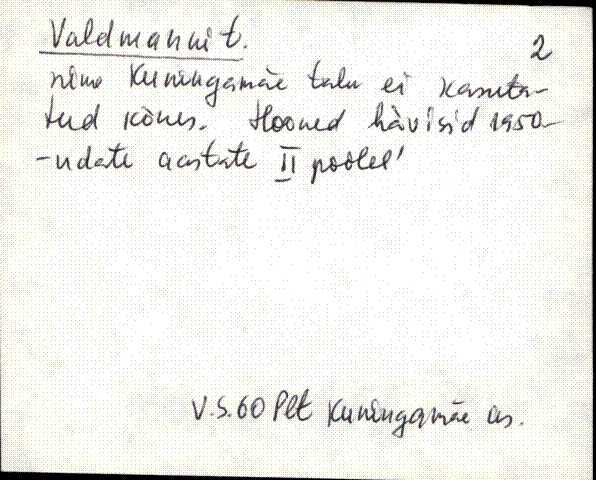 Valdmanni t.
2
nime Kuningamäe talu ei kasuta-
tud kõnes. Hooned hävisid 1950-
-ndate aastate II poolel
V.S.60 Plt Kuningamäe as.